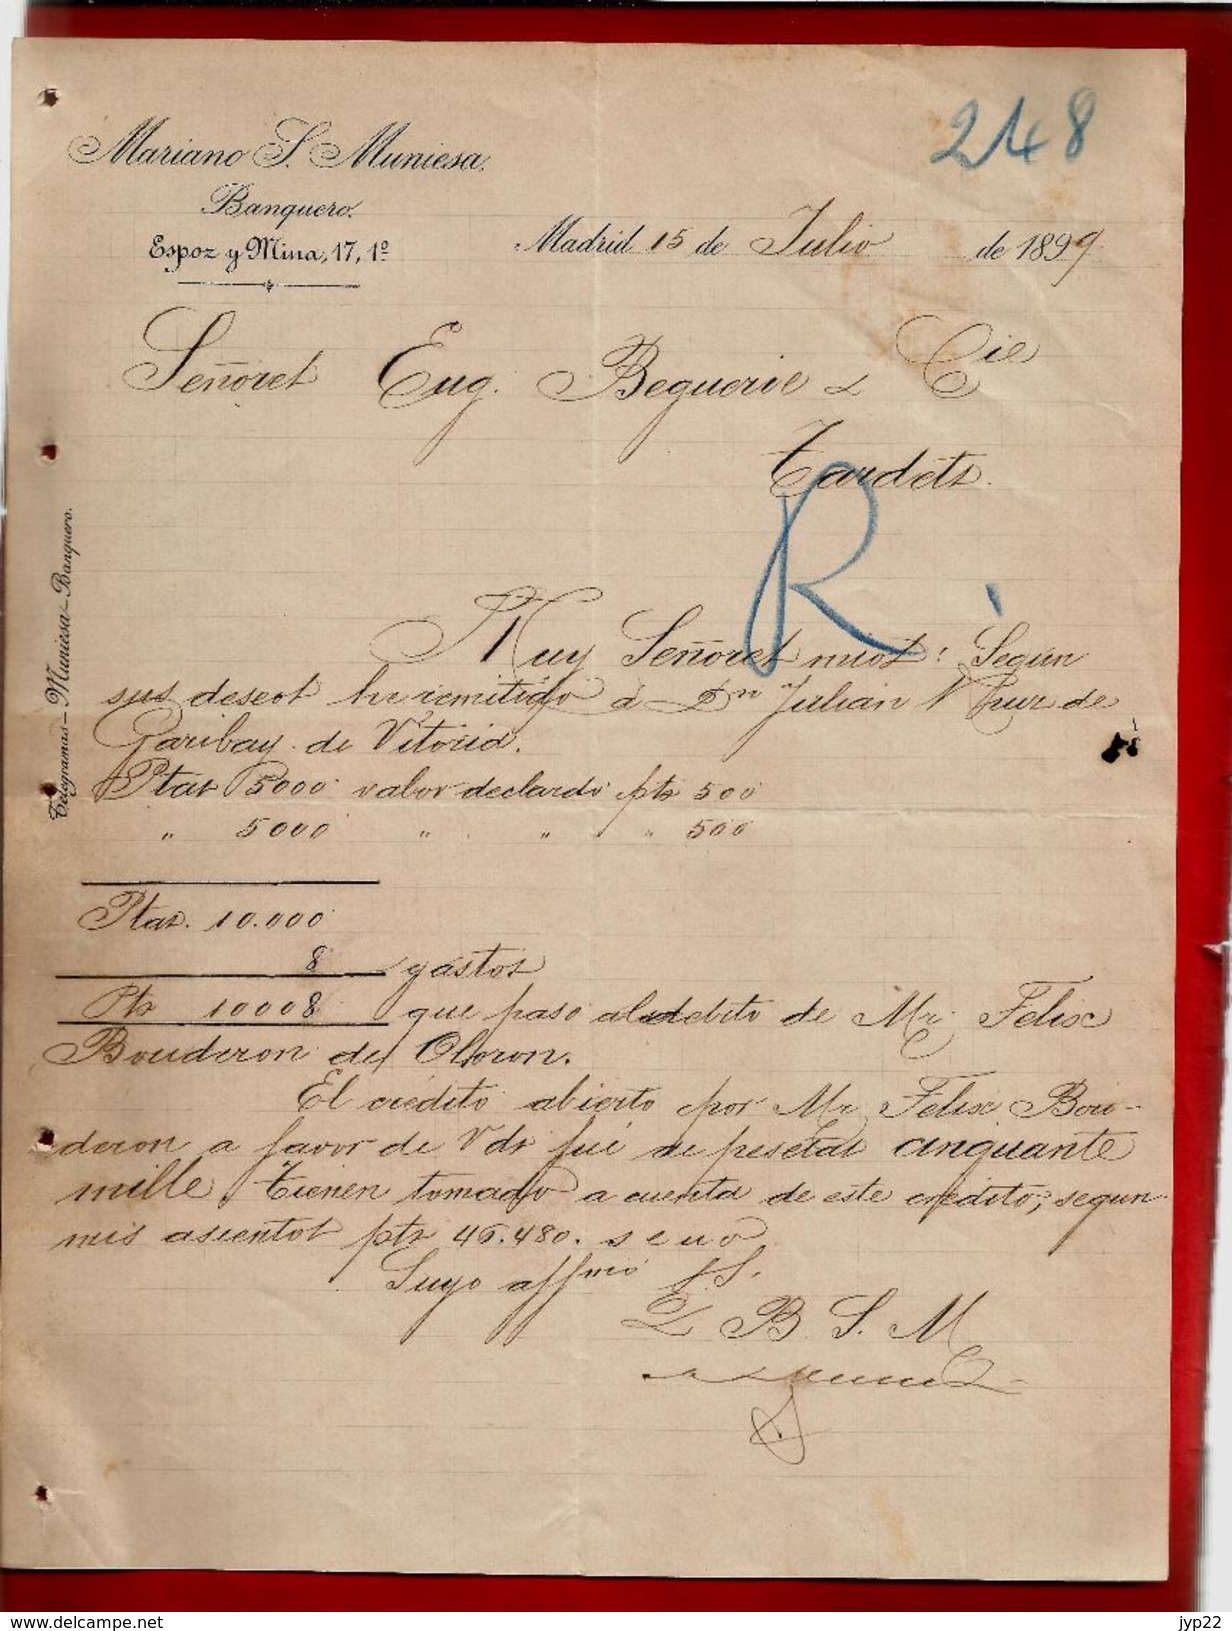 248
Mariano S. Muniesa.
Banquero.
Espoz y Mina, 17, 1º
Madrid 15 de Julio de 1899.
Señores Eug. Beguerie & Cie
Tardets.
R
Telegramas-Muniesa-Banquero.
Muy Señores mios: Según
sus deseos he remitido á Dn Julian de
Garibay de Vitoria.
Ptas 5000 valor declardo pts 500
" 5000 " " " 500
Ptas. 10.000
8 gastos
Pts 10008 que paso al debito de Mr. Felix
Bouderon de Oloron.
El crédito abierto por Mr Felix Bou-
deron a favor de Vds fué de pesetas cinquante
mille. Tienen tomado a cuenta de este crédito, segun
mis asientos pts 46.480. s e u o
Suyo affmo S.S.
Q B S. M